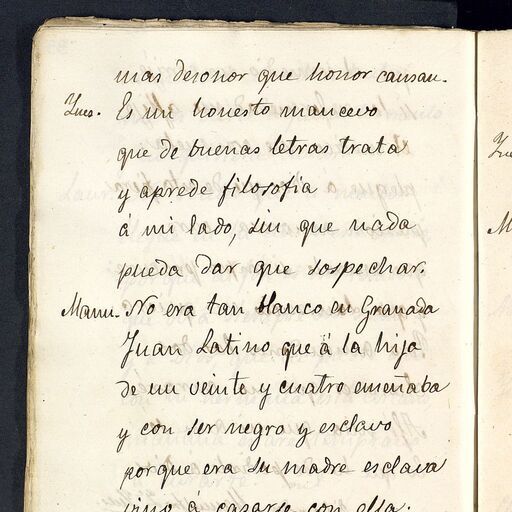 mas desonor que honor causan.
Ines. Es un honesto mancevo
que de buenas letras trata
y aprede filosofia
á mi lado, sin que nada
pueda dar que sospechar.
Manu. No era tan blanco en Granada
Juan Latino que á la hija
de un veinte y cuatro enseñaba
y con ser negro y esclavo
porque era su madre esclava
vino á casarse con ella.